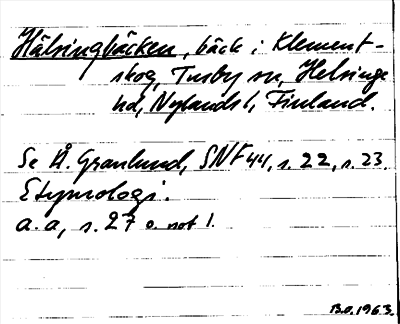 Hälsingbäcken, bäck i Klement-
skog, Tusby sn, Helsinge
hd, Nylands l, Finland.
Se Å. Granlund, SNF 44, s. 22, s. 23.
Etymologi.
a. a, s. 27 o. not 1.
B.O. 1963.